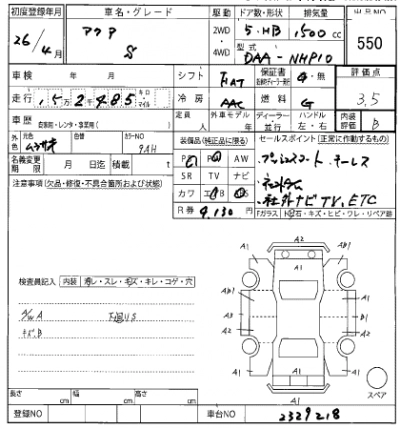 初度登録年月 車名・グレード 駆動 ドア数・形状 排気量 出品NO
26/4月 アクア S 2WD 4WD 5・HB 1500cc 550
型式 DAA-NHP10
車検 年 月 シフト FAT 保証書 有・無 評価点 3.5
走行 15万2千485 キロ マイル 冷房 AAC 燃料 G
車歴 自家用・レンタ・事業用( ) 定員 人 外車モデル 年 ディーラー 並行 ハンドル 左・右 内装評価 B
外色 元色 色替 カラーNO 9AH
装備品(純正品に限る) セールスポイント(正常に作動するもの)
名義変更期限 月 日迄 積載 t
PS PW AW プッシュスタート、キーレス
注意事項(欠品・修復・不具合箇所および状態)
SR TV ナビ
カワ エアB ABS 社外ナビTV, ETC
R券 9,130円 Fガラス
検査員記入 内装 汚レ・スレ・キズ・キレ・コゲ・穴
A/W A 下回US
キズB
A2
A1 AB1
A1
AB1 A1
AB3 B2
A2 A2
A1 A1
スペア
長さ cm 幅 cm 高さ cm
登録NO 車台NO 2329218